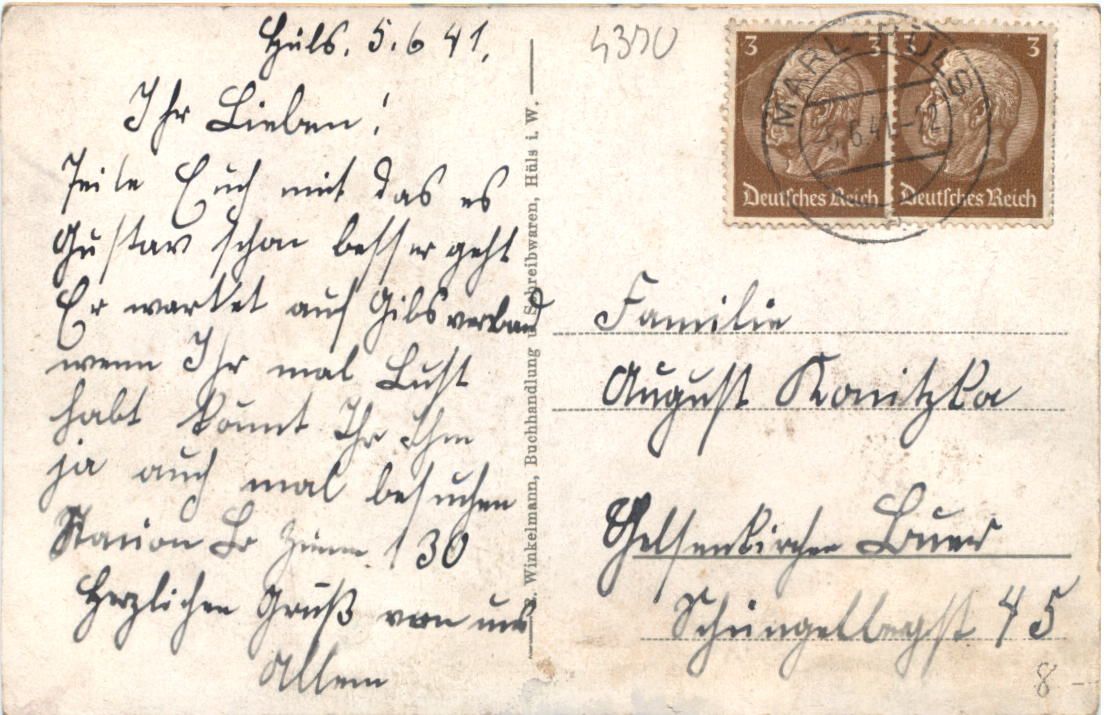 Hüls. 5.6 41.
Ihr Lieben!
Teile Euch mit das es
Gustav schon besser geht
Er wartet auf Gibsverband
wenn Ihr mal Lust
habt könnt Ihr Ihm
ja auch mal besuchen
Station Zimm 130
Herzlichen Gruß von uns
Allem
E. Winkelmann, Buchhandlung u. Schreibwaren, Hüls i. W.
4370
3 3 3 3
Deutsches Reich Deutsches Reich
MARL-HÜLS
5.6.41-22
Familie
August Konitzka
Gelsenkirchen Buer
45
8